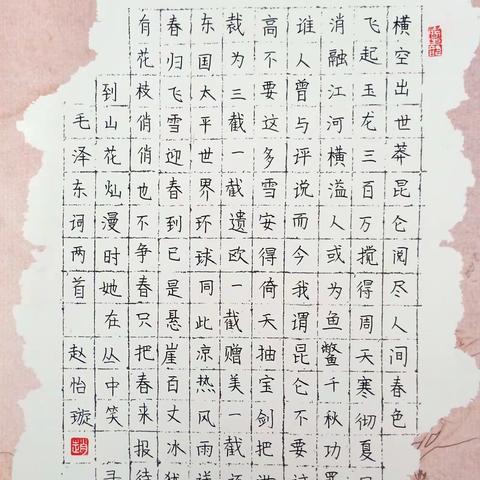 横空出世莽昆仑阅尽人间春色
飞起玉龙三百万搅得周天寒彻夏
消融江河横溢人或为鱼鳖千秋功
谁人曾与评说而今我谓昆仑不要这
高不要这多雪安得倚天抽宝剑把
裁为三截一截遗欧一截赠美一截还
东国太平世界环球同此凉热风雨送
春归飞雪迎春到已是悬崖百丈冰犹
有花枝俏俏也不争春只把春来报待
到山花灿漫时她在丛中笑
毛泽东词两首 赵怡璇